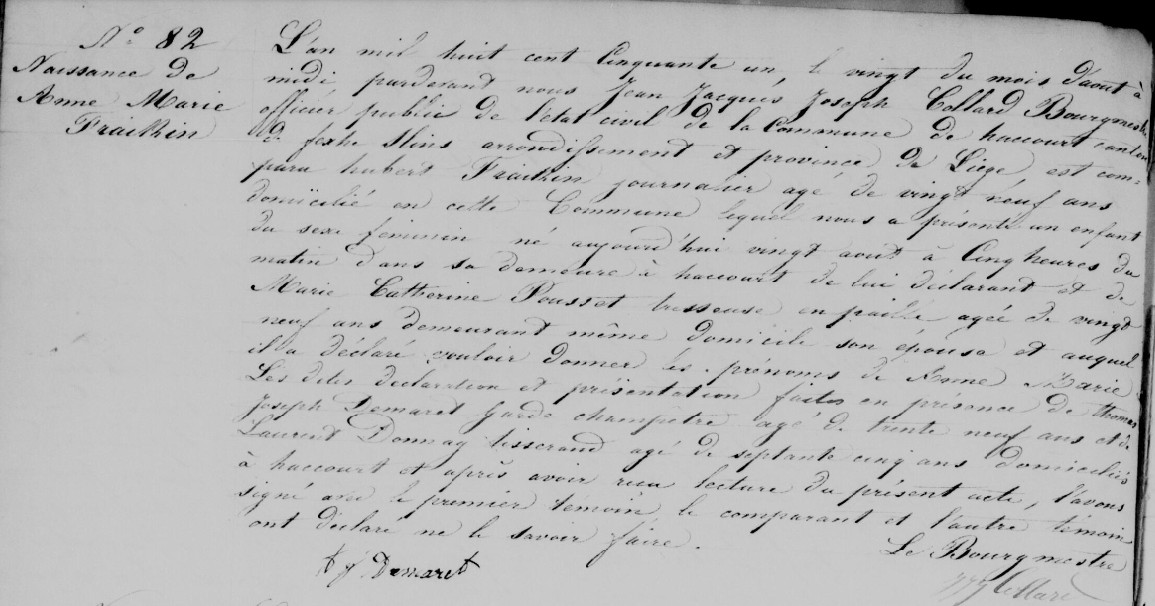 N° 82
Naissance de
Anne Marie
Fraikin
L'an mil huit cent Cinquante un, le vingt du mois d'aout à
midi pardevant nous Jean Jacques Joseph Collard Bourgmestre
officier public de l'etat civil de la Commune de haccourt canton
de fexhe Slins arrondissement et province de Liège, est com=
paru hubert Fraikin journalier agé de vingt neuf ans
domicilié en cette Commune lequel nous a présenté un enfant
du sexe feminin né aujourd'hui vingt août à Cinq heures du
matin dans sa demeure à haccourt de lui déclarant et de
Marie Catherine Pousset tresseuse en paille agée de vingt
neuf ans demeurant même domicile son épouse et auquel
il a déclaré vouloir donner les prénoms de Anne Marie
Les dites déclaration et présentation faites en présence de thomas
Joseph Demaret Garde champêtre agé de trente neuf ans et de
Laurent Donnay tisserand agé de septante cinq ans domiciliés
à haccourt et après avoir reçu lecture du présent acte, l'avons
signé avec le premier témoin le comparant et l'autre témoin
ont déclaré ne le savoir faire.
Le Bourgmestre
t j Demaret
JJJ Collard